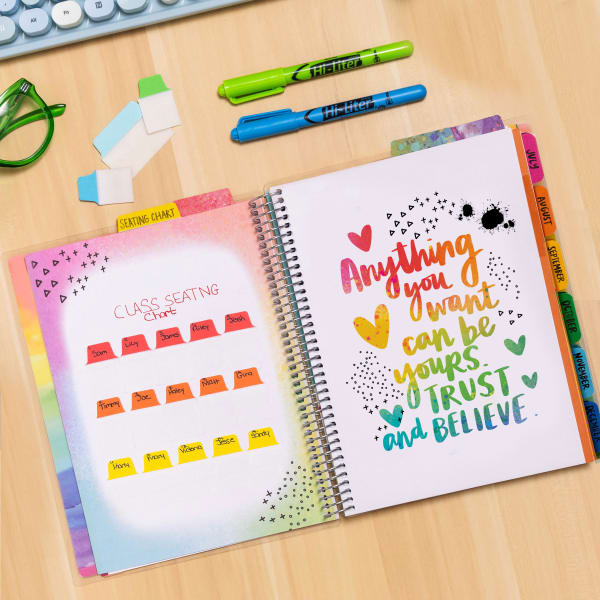 Hi-Liter
Hi-Liter
SEATING CHART
JULY
AUGUST
SEPTEMBER
OCTOBER
NOVEMBER
DECEMBER
CLASS SEATNG
Chart
Sam Lily James Riley
Timmy Joe Haley Matt Gina
Mary Victoria Jesse Sandy
Anything
you
want
can be
yours.
TRUST
and BELIEVE.